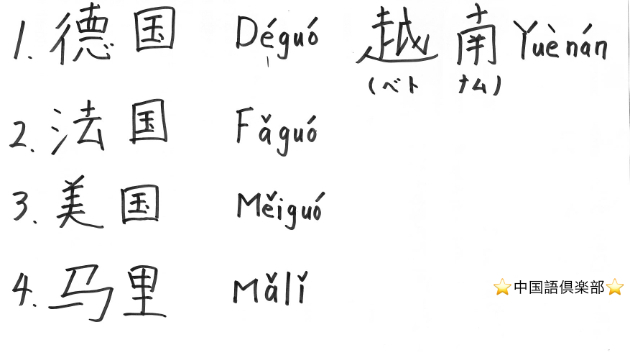 1. 德国 Déguó 越南 Yuènán
(ベトナム)
2. 法国 Fǎguó
3. 美国 Měiguó
4. 马里 Mǎlǐ
⭐中国語倶楽部⭐